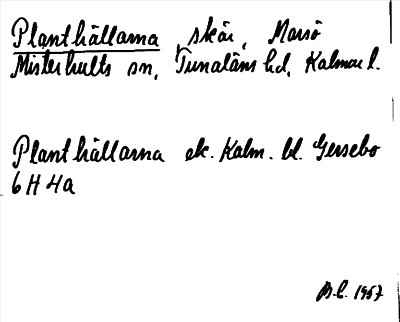 Planthällarna, skär, Marsö
Misterhults sn, Tunaläns hd, Kalmar l.
Planthällarna ek. Kalm. bl. Gersebo
6 H 4a
B.L. 1957